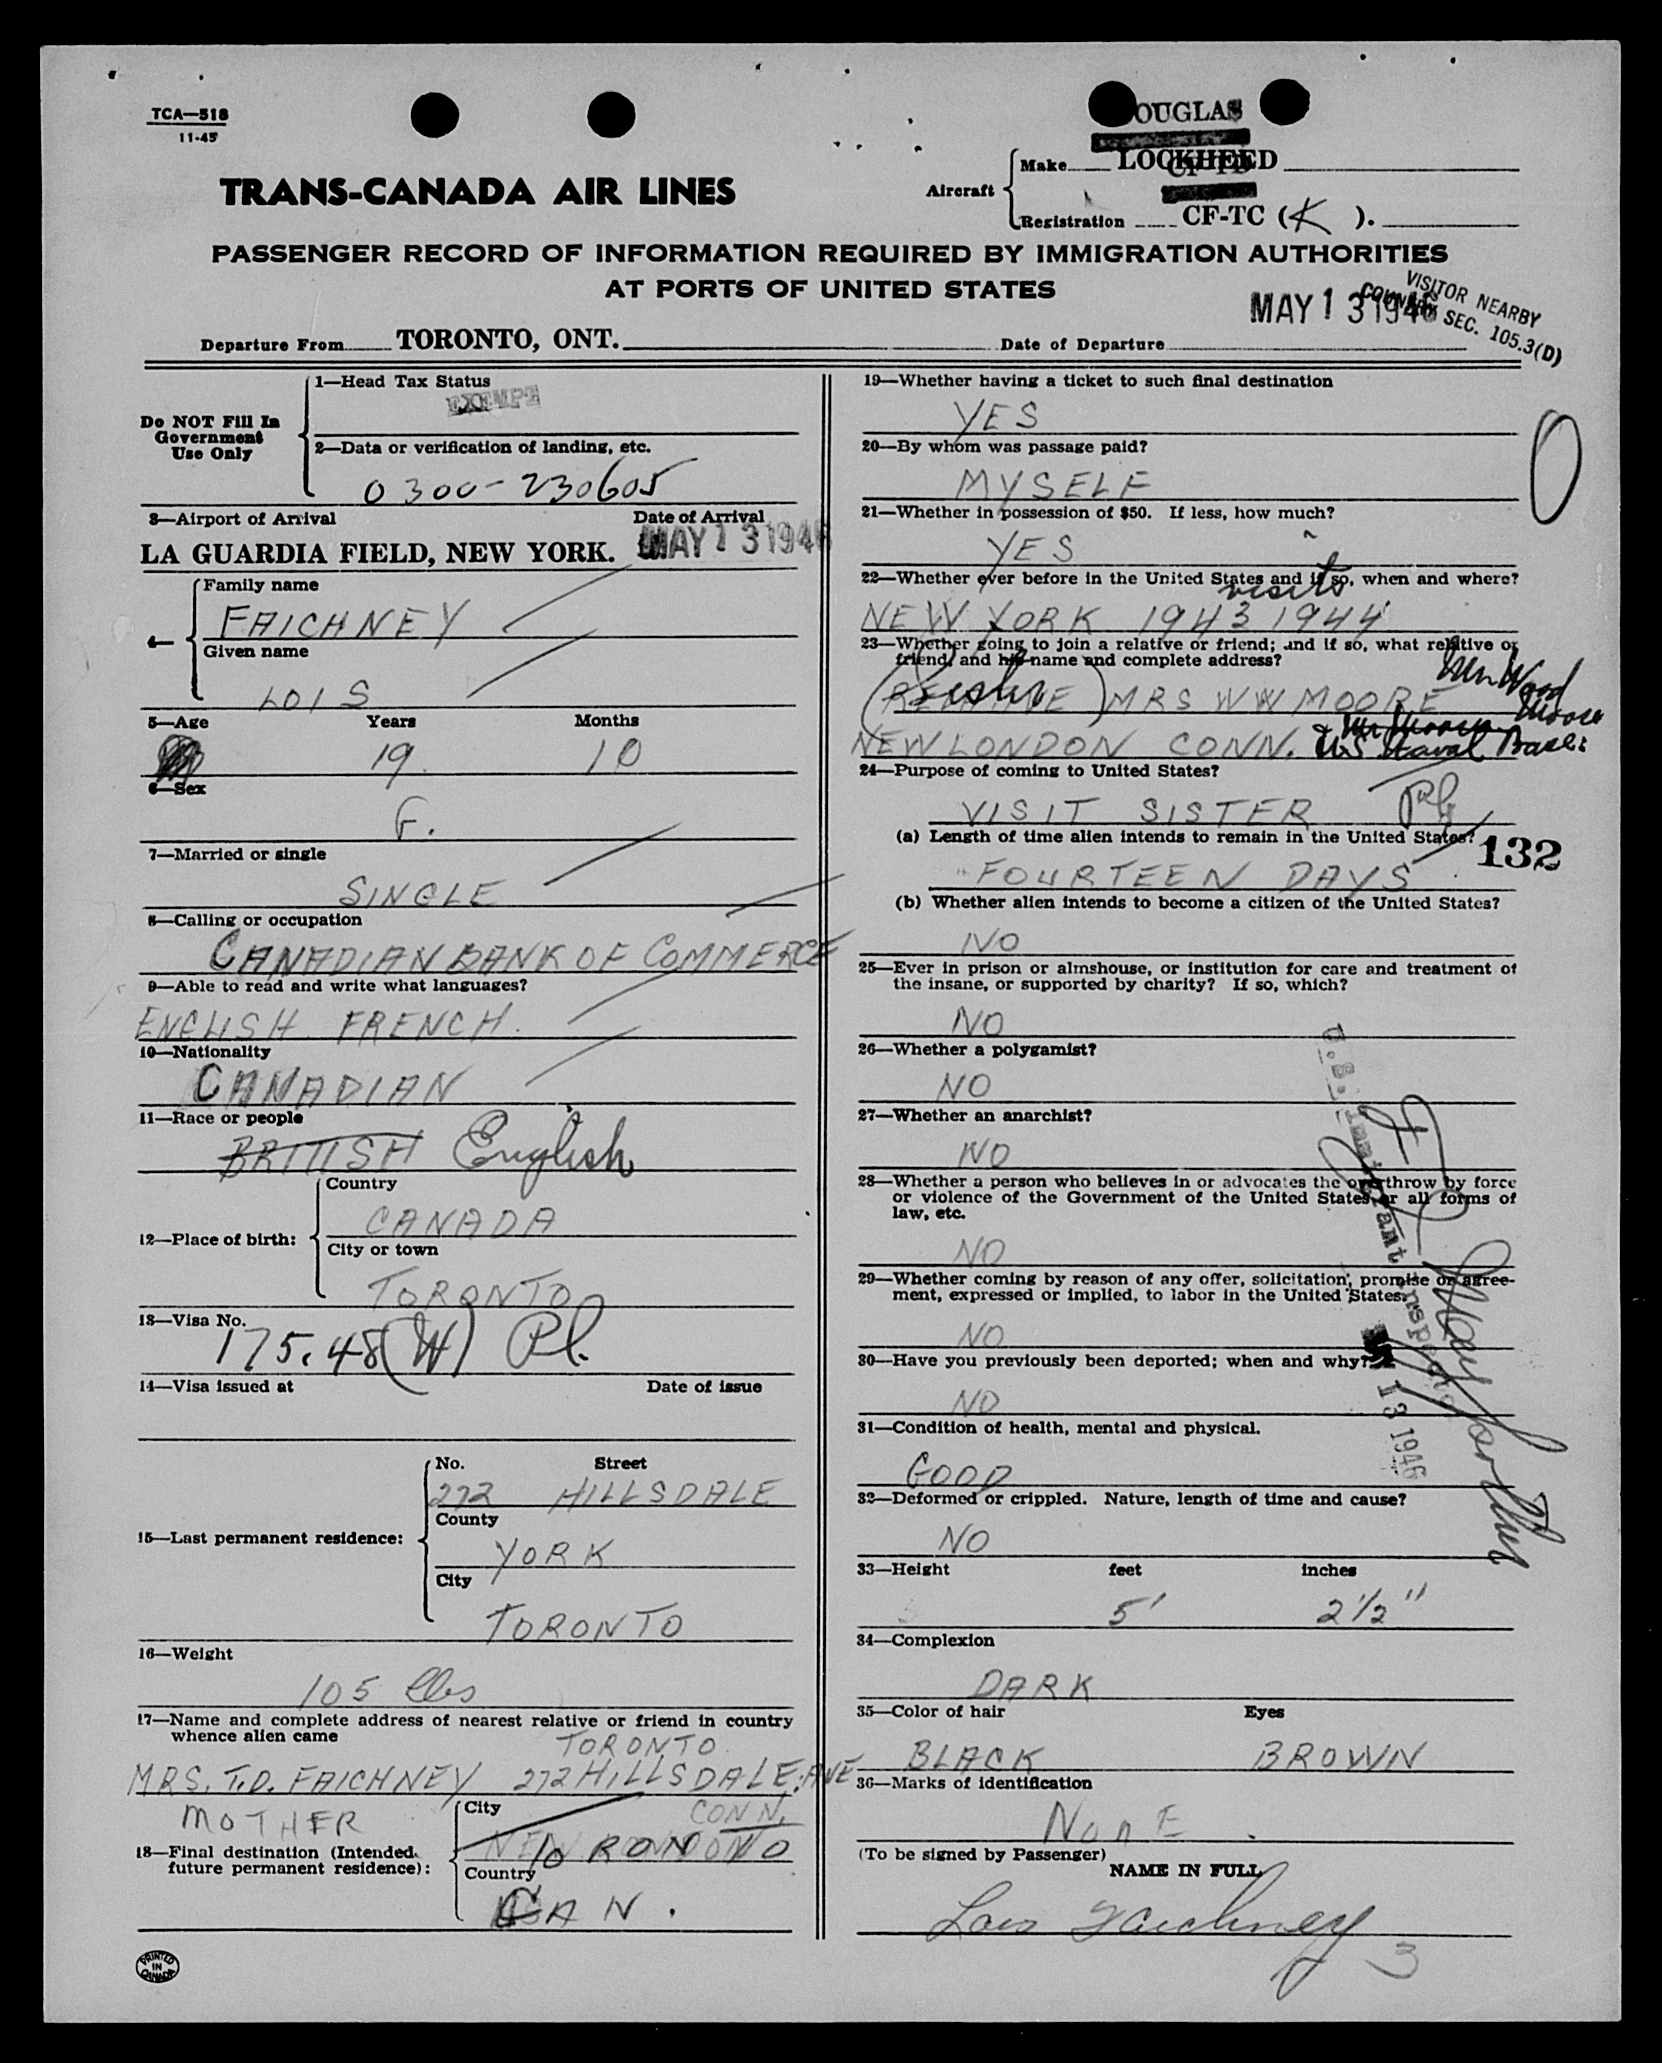 TCA—518
11-45
TRANS-CANADA AIR LINES
DOUGLAS
Aircraft
Make LOCKHEED
Registration CF-TC (K).
PASSENGER RECORD OF INFORMATION REQUIRED BY IMMIGRATION AUTHORITIES
AT PORTS OF UNITED STATES
VISITOR NEARBY
COUNTRY SEC. 105.3(D)
MAY 13 1946
Departure From TORONTO, ONT.
Date of Departure
Do NOT Fill In
Government
Use Only
1—Head Tax Status
EXEMPT
2—Data or verification of landing, etc.
0300-230605
3—Airport of Arrival Date of Arrival
LA GUARDIA FIELD, NEW YORK. MAY 13 1946
4—
Family name
FAICHNEY
Given name
LOIS
5—Age Years Months
19 10
6—Sex
F.
7—Married or single
SINGLE
8—Calling or occupation
CANADIAN BANK OF COMMERCE
9—Able to read and write what languages?
ENGLISH FRENCH.
10—Nationality
CANADIAN
11—Race or people
BRITISH English
12—Place of birth:
Country
CANADA
City or town
TORONTO
13—Visa No.
175.48 (W) Pl.
14—Visa issued at Date of issue
15—Last permanent residence:
No. Street
272 HILLSDALE
County
YORK
City
TORONTO
16—Weight
105 lbs
17—Name and complete address of nearest relative or friend in country
whence alien came
TORONTO
MRS. T.D. FAICHNEY 272 HILLSDALE AVE
MOTHER
18—Final destination (Intended
future permanent residence):
City
CONN.
TORONTO
Country
CAN.
PRINTED IN CANADA
19—Whether having a ticket to such final destination
YES
20—By whom was passage paid?
MYSELF
21—Whether in possession of $50. If less, how much?
YES
22—Whether ever before in the United States and if so, when and where?
visits
NEW YORK 1943 1944
23—Whether going to join a relative or friend; and if so, what relative or
friend, and his name and complete address?
(RELATIVE sister) MRS W W MOORE Mrs Wood Moore
NEW LONDON CONN. US Naval Base
24—Purpose of coming to United States?
VISIT SISTER Pl
(a) Length of time alien intends to remain in the United States?
132
FOURTEEN DAYS
(b) Whether alien intends to become a citizen of the United States?
NO
25—Ever in prison or almshouse, or institution for care and treatment of
the insane, or supported by charity? If so, which?
NO
26—Whether a polygamist?
NO
27—Whether an anarchist?
NO
28—Whether a person who believes in or advocates the overthrow by force
or violence of the Government of the United States or all forms of
law, etc.
NO
29—Whether coming by reason of any offer, solicitation, promise or agree-
ment, expressed or implied, to labor in the United States.
NO
30—Have you previously been deported; when and why?
NO
U.S. Immigrant Inspector
13 1946
31—Condition of health, mental and physical.
GOOD
32—Deformed or crippled. Nature, length of time and cause?
NO
33—Height feet inches
5' 2 1/2"
34—Complexion
DARK
35—Color of hair Eyes
BLACK BROWN
36—Marks of identification
NONE
(To be signed by Passenger)
NAME IN FULL
Lois Faichney
3